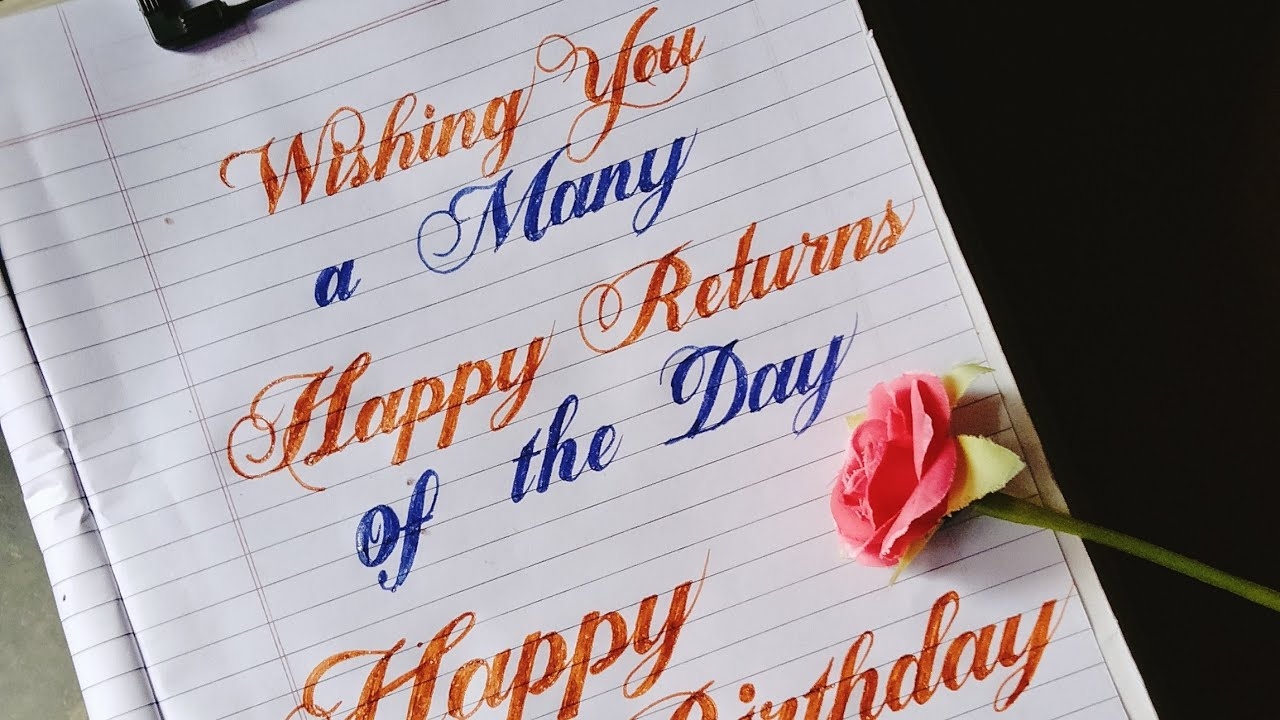 Wishing You
a Many
Happy Returns
of the Day
Happy
Birthday